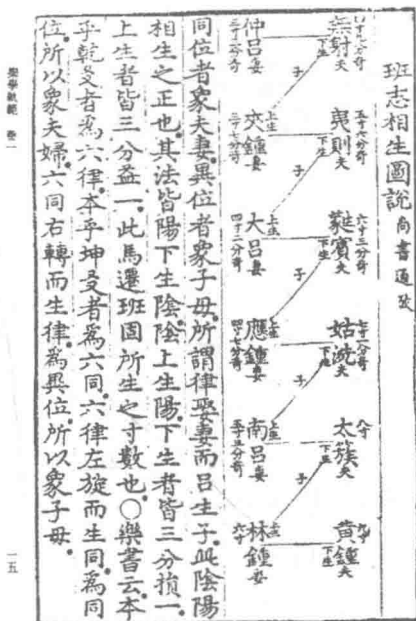 班志相生圖說尚書通攷
黃鍾夫 九寸 下生
太簇夫 八寸 下生
姑洗夫 七寸一分奇 下生
蕤賓夫 六寸三分奇 下生
夷則夫 五寸六分奇 下生
無射夫 下生
子
子
子
子
子
林鍾妻 六寸 上生
南呂妻 五寸三分奇 上生
應鍾妻 四寸七分奇 上生
大呂妻 四寸二分奇 上生
夾鍾妻 三寸七分奇 上生
仲呂妻
同位者象夫妻異位者象子母所謂律娶妻而呂生子此陰陽
相生之正也其法皆陽下生陰陰上生陽下生者皆三分損一
上生者皆三分益一此馬遷班固所生之寸數也○樂書云本
乎乾爻者為六律本乎坤爻者為六同六律左旋而生同為同
位所以象夫婦六同右轉而生律為異位所以象子母
樂學軌範 卷一
一五